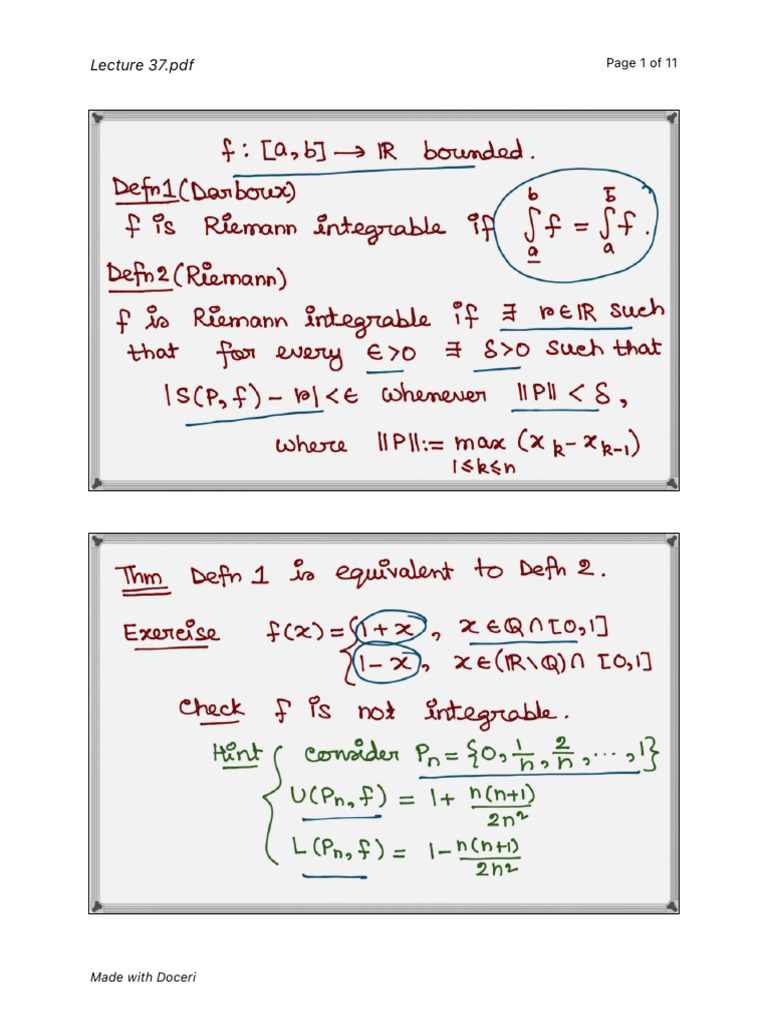 Lecture 37.pdf
Page 1 of 11
f : [a,b] → ℝ bounded.
Defn1 (Darboux)
f is Riemann integrable if ∫_a^b f = ∫_a^b̅ f.
Defn2 (Riemann)
f is Riemann integrable if ∃ r∈ℝ such
that for every ϵ>0 ∃ δ>0 such that
|S(P,f) – r| < ϵ whenever ||P|| < δ,
where ||P|| := max (x_k – x_{k-1})
1≤k≤n
Thm Defn 1 is equivalent to Defn 2.
Exercise f(x) = { 1+x, x∈ℚ∩[0,1]
1–x, x∈(ℝ\ℚ)∩[0,1]
Check f is not integrable.
Hint { consider P_n = {0, 1/n, 2/n, ..., 1}
U(P_n, f) = 1 + n(n+1)/2n²
L(P_n, f) = 1 – n(n+1)/2n²
Made with Doceri